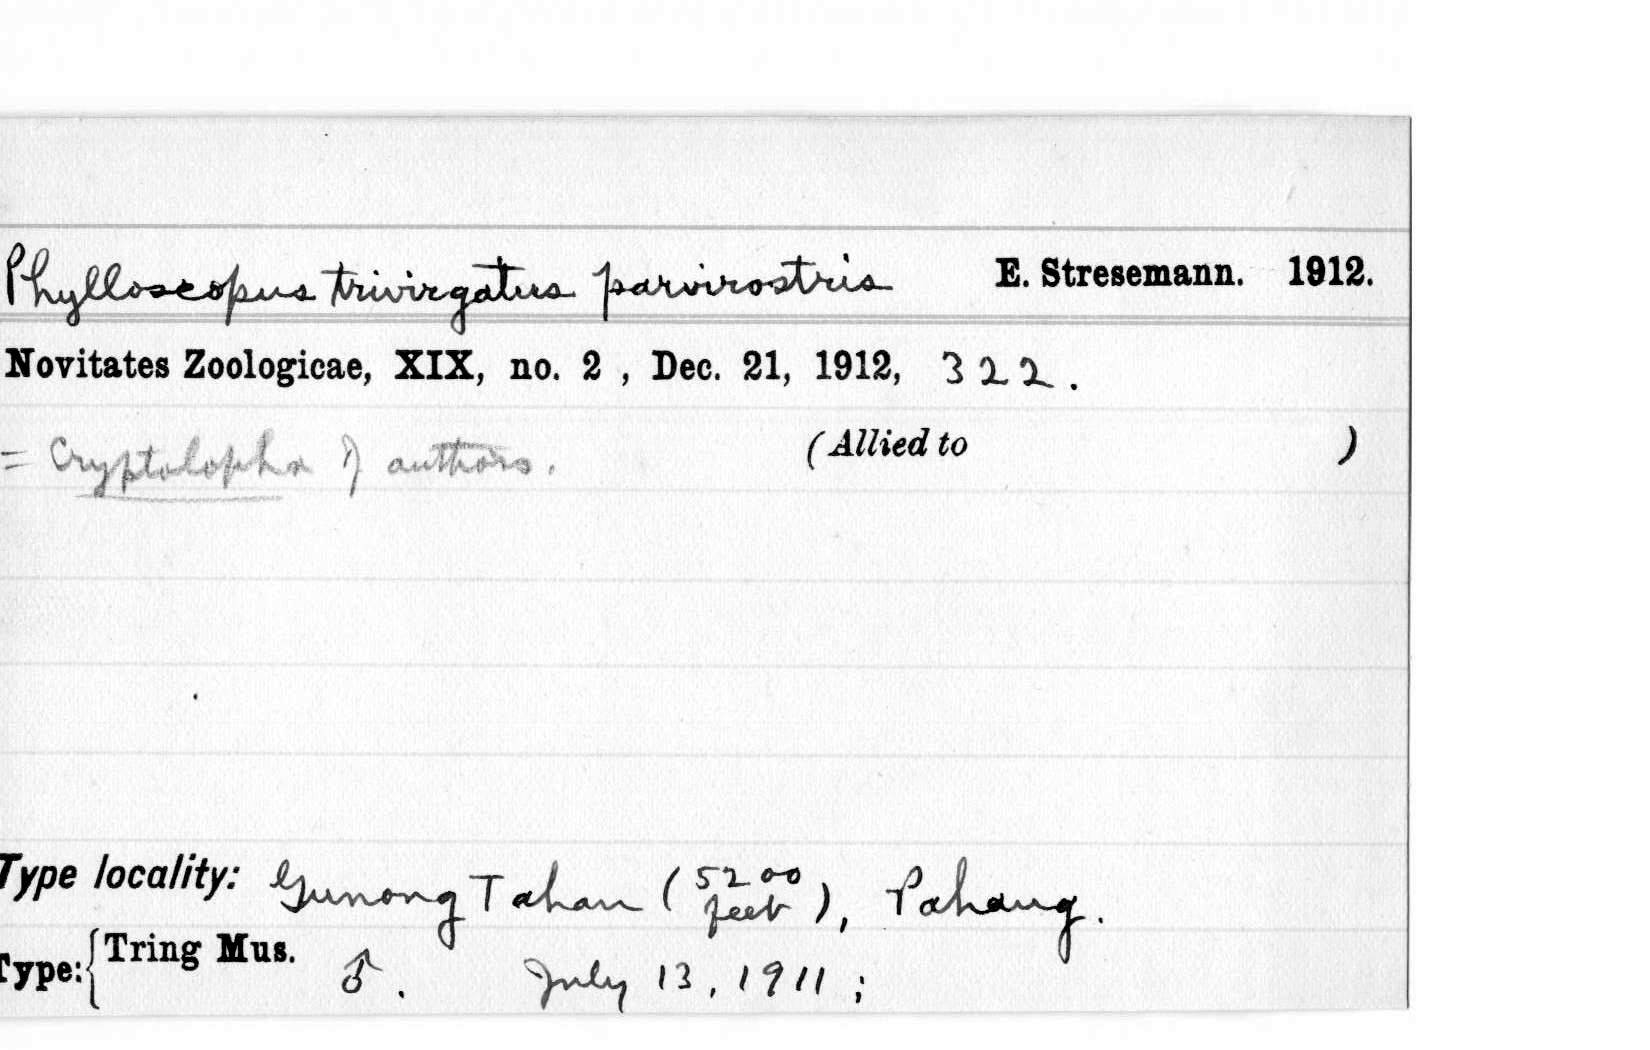 Phylloscopus trivirgatus parvirostris E. Stresemann. 1912.
Novitates Zoologicae, XIX, no. 2 , Dec. 21, 1912, 322.
= Cryptolopha of authors. (Allied to )
Type locality: Gunong Tahan (5200 feet), Pahang.
Type: { Tring Mus. ♂. July 13, 1911 ;